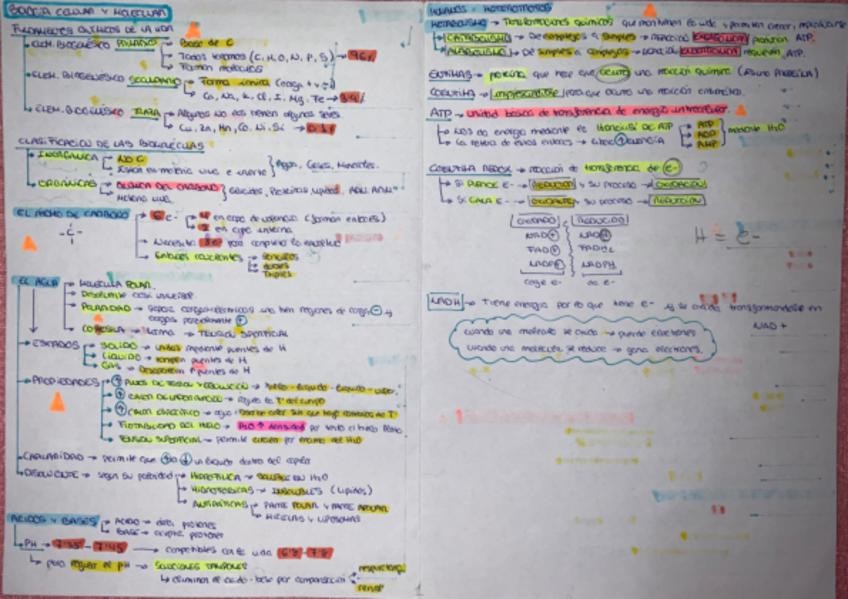 BIOLOGÍA CELULAR Y MOLECULAR
FUNDAMENTOS QUÍMICOS DE LA VIDA
ELEM. BIOGENÉSICO PRIMARIOS → Base de C
Todos (C, H, O, N, P, S) → 96%
Forman moléculas
ELEM. BIOGENÉSICO SECUNDARIO → Forma iónica (carga + y -)
Ca, Na, K, Cl, I, Mg, Fe → 3'9%
ELEM. BIOGENÉSICO TRAZA → Algunos no los tienen algunos seres
Cu, Zn, Mn, Co, Ni, Si → 0'1%
CLASIFICACIÓN DE LAS BIOMOLÉCULAS
INORGÁNICA → NO C
materia viva e inerte } Agua, Gases, Minerales.
ORGÁNICAS → QUÍMICA DEL CARBONO } Glúcidos, Proteínas, Lípidos, ADN, ARN
Materia viva
EL ÁTOMO DE CARBONO → 6 e-
4 en capa de valencia (forman enlaces)
2 en capa interna
-C-
Necesita para completar
ENLACES COVALENTES → Sencillos
dobles
triples
EL AGUA → MOLÉCULA POLAR.
Disolvente casi universal
POLARIDAD → cargas eléctricas
COHESIÓN → TENSIÓN SUPERFICIAL
ESTADOS → SÓLIDO → unidas mediante puentes de H
LÍQUIDO → rompen puentes de H
GAS → Desaparecen puentes de H
PROPIEDADES → PUNTOS DE FUSIÓN Y EBULLICIÓN → hielo - líquido - vapor
CALOR DE VAPORIZACIÓN → regula la Tª del cuerpo
CALOR ESPECÍFICO → cambios de Tª
FLOTABILIDAD DEL HIELO → H2O ↑ densidad por tanto el hielo flota
TENSIÓN SUPERFICIAL → permite por encima del H2O
CAPILARIDAD → permite que un líquido dentro del capilar
DISOLVENTE → según su polaridad → HIDROFÍLICA → SOLUBLE EN H2O
HIDROFÓBICAS → INSOLUBLES (Lípidos)
ANFIPÁTICAS → PARTE POLAR Y PARTE APOLAR
MICELAS Y LIPOSOMAS
ÁCIDOS Y BASES → ÁCIDO → dona protones
BASE → acepta protones
PH → 7'35 - 7'45 → compatibles con la vida 6'8 - 7'8
para regular el pH → SOLUCIONES TAMPONES
eliminan el ácido - base por compensación
respiratoria
renal
METABOLISMO → Transformaciones químicas que mantienen la vida y permiten crecer, reproducirse
CATABOLISMO → De complejos a simples → reacción EXERGÓNICA producen ATP.
ANABOLISMO → De simples a complejos → reacción ENDERGÓNICA requieren ATP.
ENZIMAS → proteína que hace que ocurra una reacción química
COENZIMA → imprescindible para que ocurra una reacción enzimática.
ATP → unidad básica de transferencia de energía intracelular.
Nos da energía mediante el HIDRÓLISIS DE ATP → ATP
ADP mediante H2O
AMP
La rotura de estos enlaces → libera energía
COENZIMA REDOX → reacción de transferencia de e-
Si PIERDE e- → REDUCTOR y su proceso → OXIDACIÓN
Si GANA e- → OXIDANTE y su proceso → REDUCCIÓN
OXIDADO REDUCIDO
NAD+ NADH
FAD+ FADH2
NADP+ NADPH
coge e- da e-
H = e-
NADH → Tiene energía por lo que tiene e- y se oxida transformándose en
NAD+
cuando una molécula se oxida → pierde electrones
cuando una molécula se reduce → gana electrones.